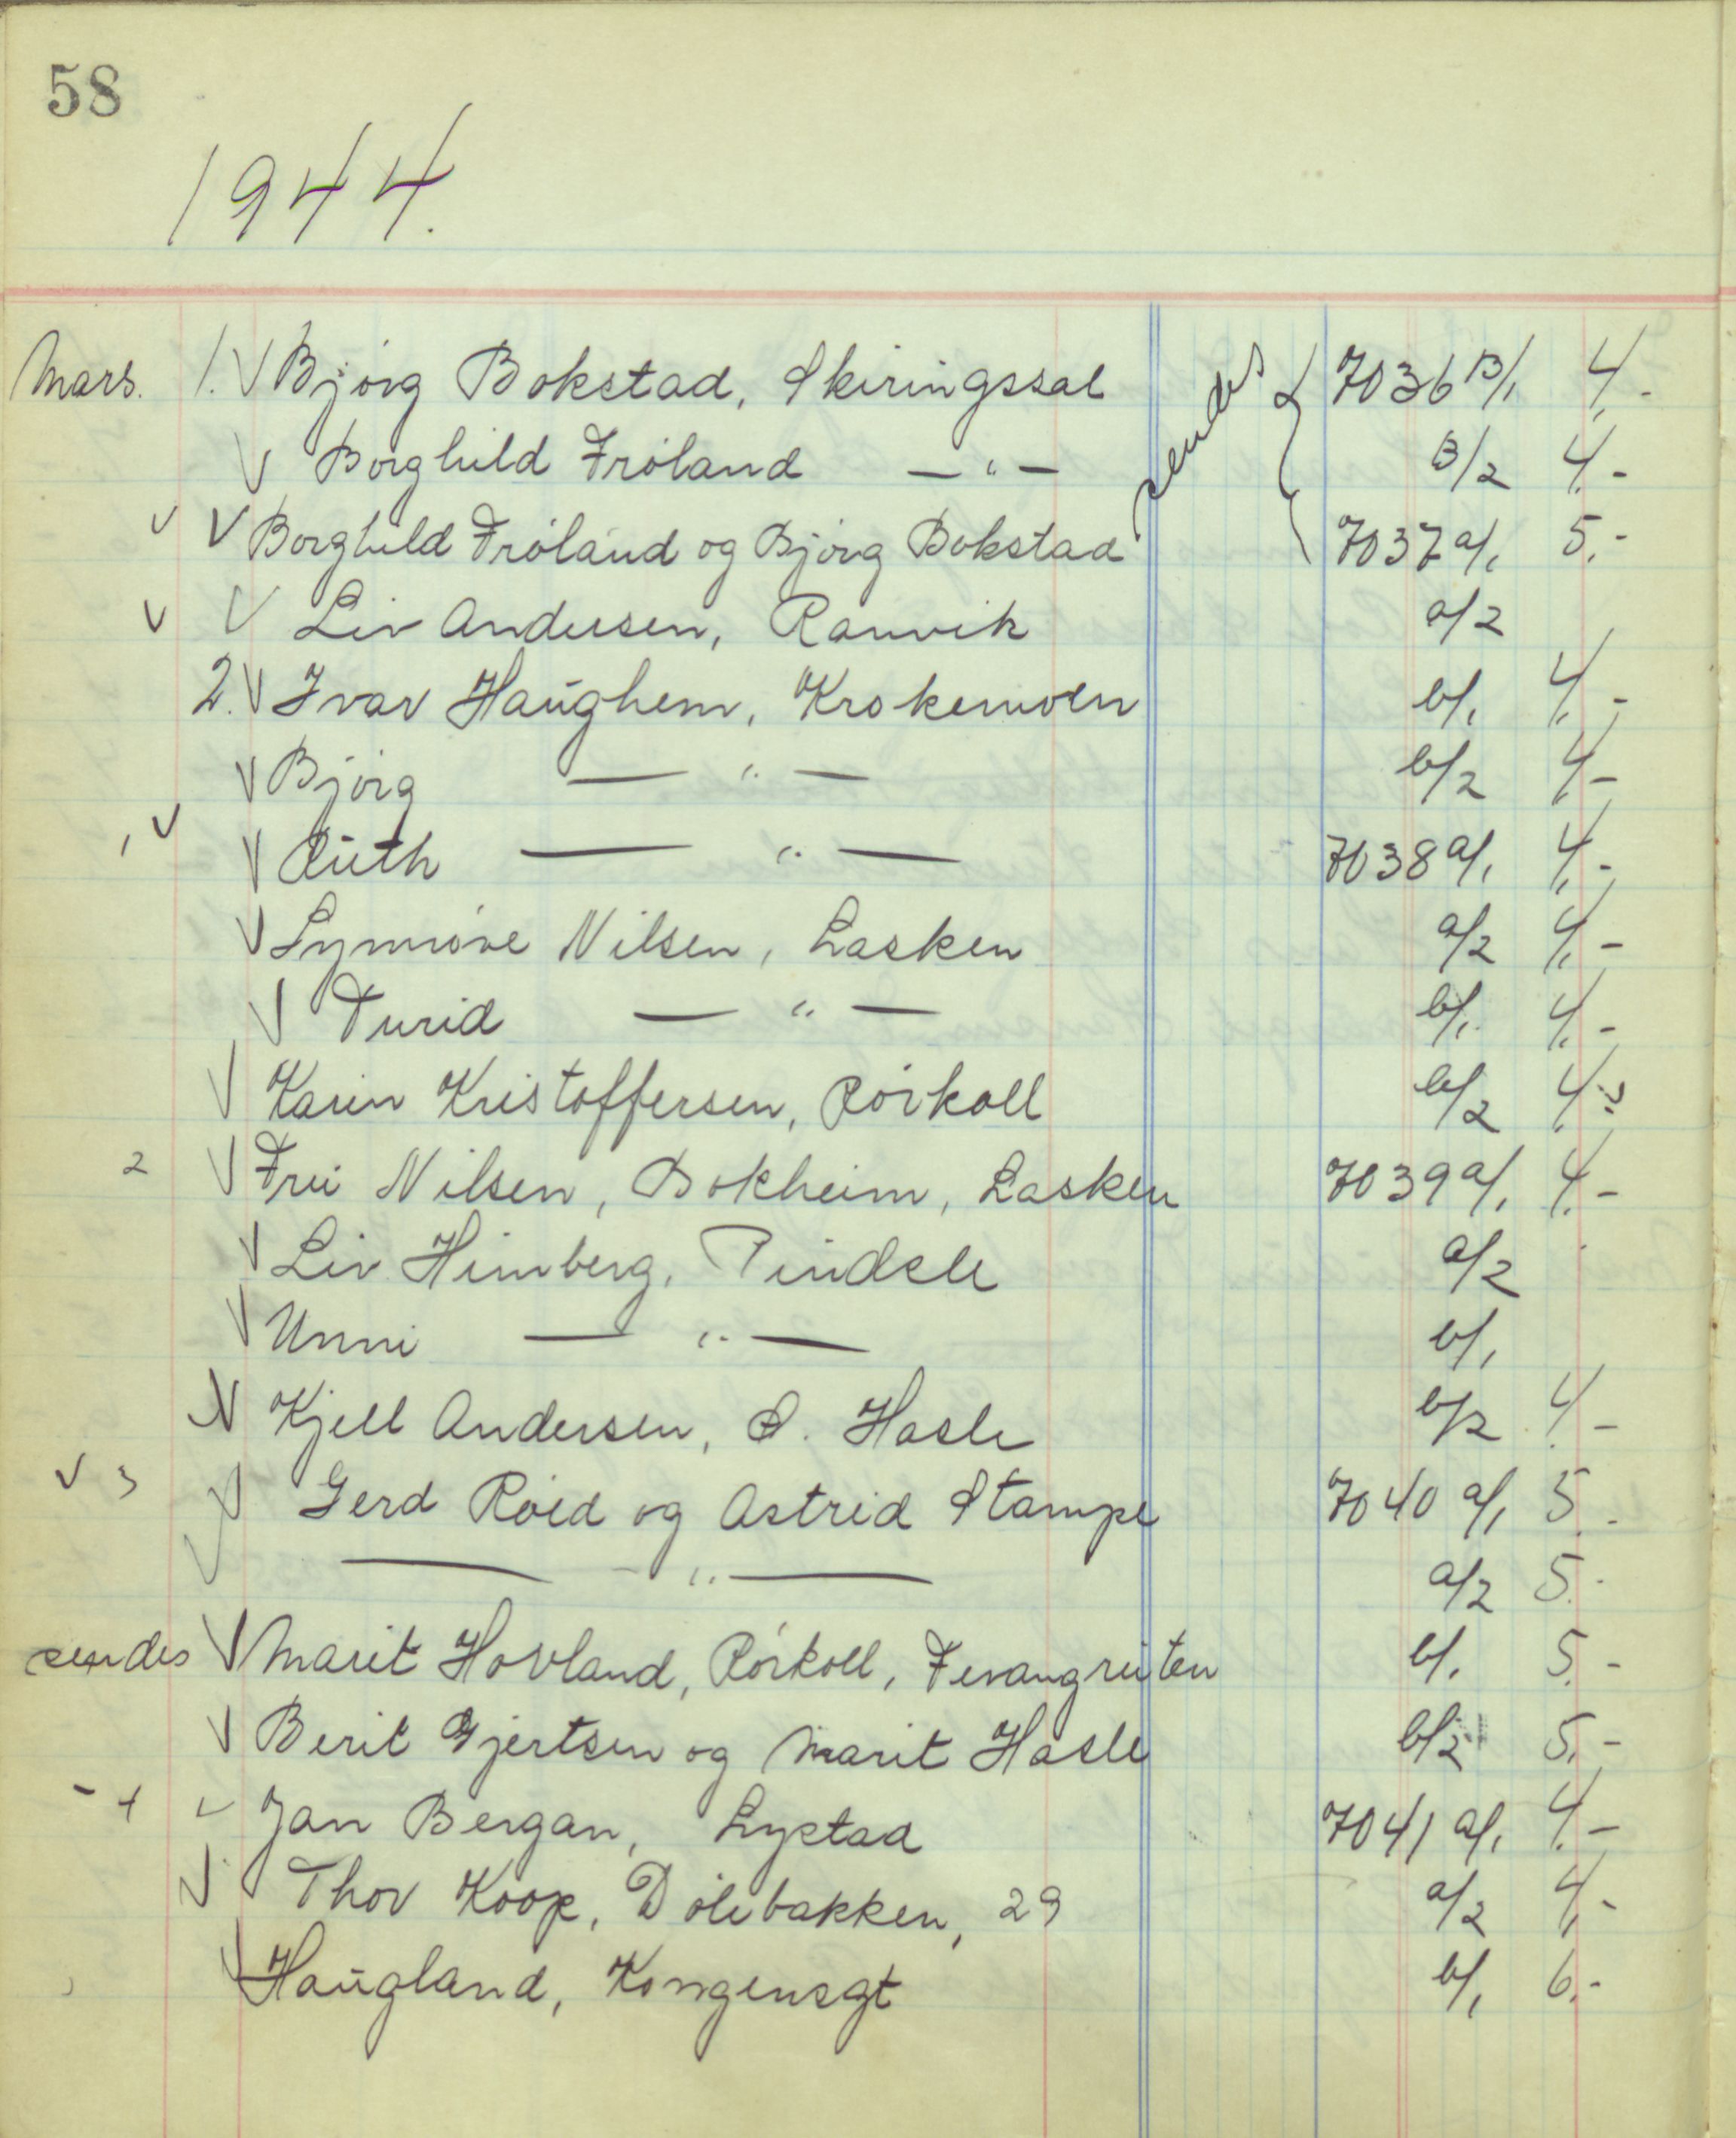 58
1944.
Mars. 1. V Bjørg Bokstad, Skiringssal sendes { 7036 B/1 4,-
V Borghild Frøland — " — B/2 4,-
V V Borghild Frøland og Bjørg Bokstad 7037 a/1 5,-
V V Liv Andersen, Ranvik a/2
2. V Ivar Haughem, Krokemoen b/1 4,-
V Bjørg — " — b/2 4,-
1 V V Ruth — " — 7038 a/1 4,-
V Synnøve Nilsen, Lasken a/2 4,-
V Turid — " — b/1 4,-
V Karin Kristoffersen, Rørkoll b/2 4,-
2 V Fru Nilsen, Bokheim, Lasken 7039 a/1 4,-
V Liv Himberg, Pindsle a/2
V Unni — " — b/1
V Kjell Andersen, Ø. Hasle b/2 4,-
V 3 V Gerd Røed og Astrid Stampe 7040 a/1 5.-
V — " — a/2 5.-
sendes V Marit Hovland, Rørkoll, Fevangruten b/1 5.-
V Berit Gjertsen og Marit Hasle b/2 5,-
- 4 V Jan Bergan, Lystad 7041 a/1 4,-
V Thor Koop, Dølebakken, 29 a/2 4,-
V Haugland, Kongensgt b/1 6,-